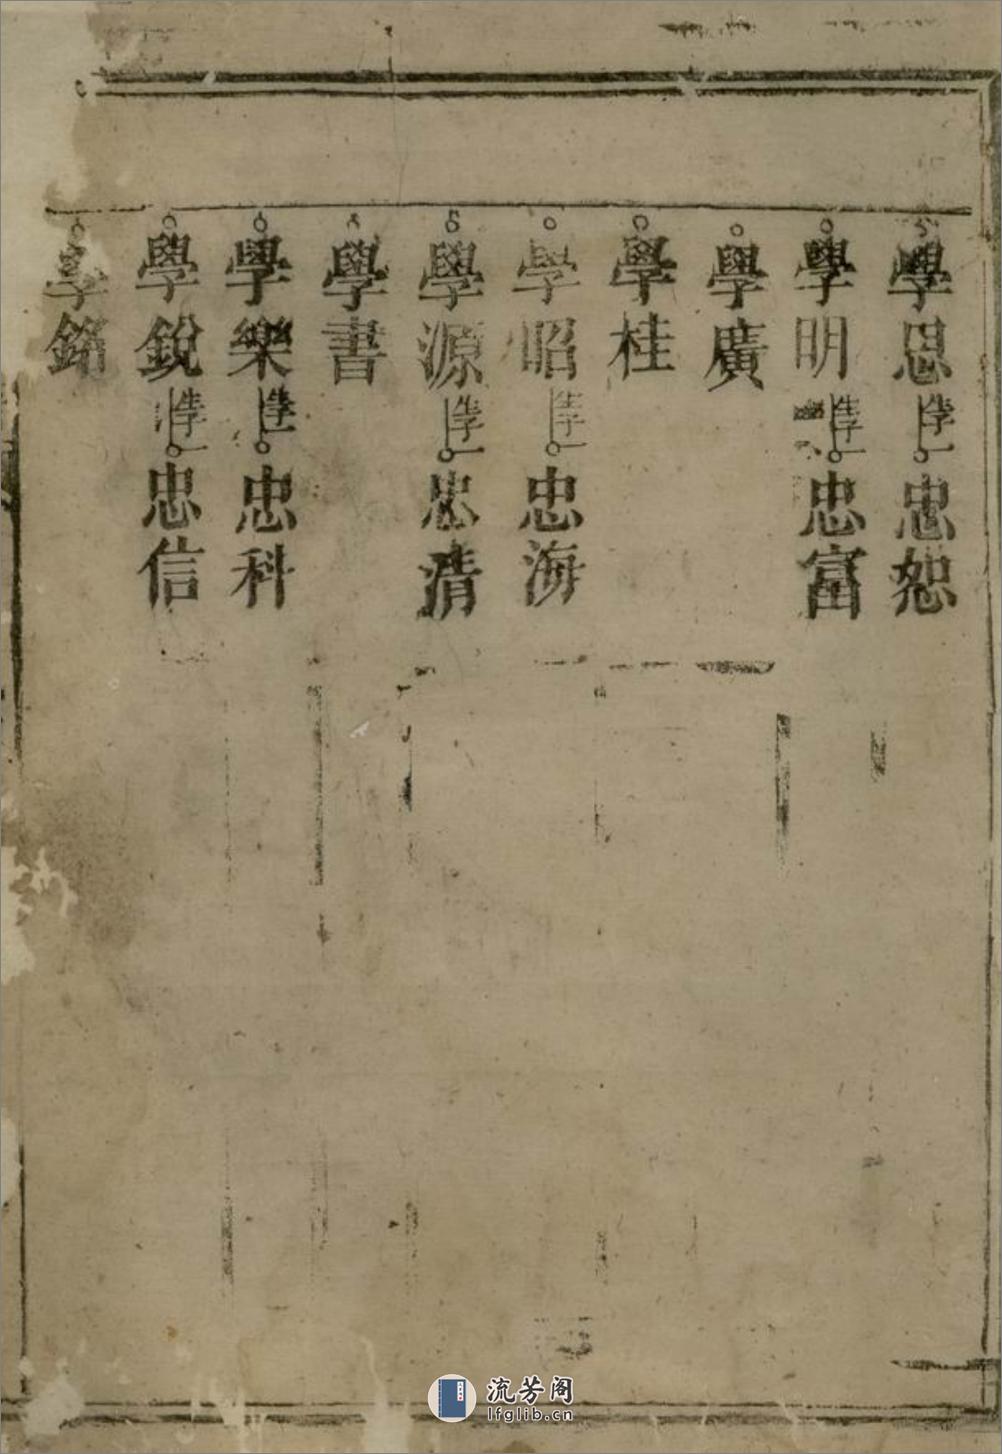 學恩 徙李一 忠恕
學明 徙李一 忠富
學廣
學桂
學昭 徙李一 忠海
學源 徙李一 忠清
學書
學樂 徙李一 忠科
學銳 徙李一 忠信
學銘
流芳阁
lfglib.cn